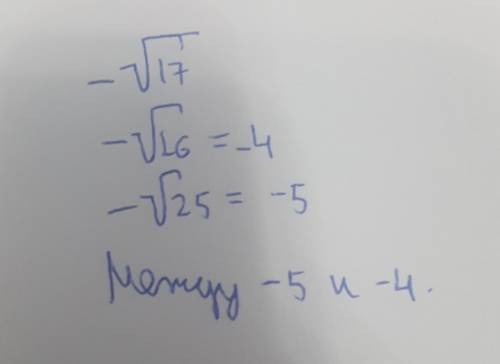 -√17
-√16 = -4
-√25 = -5
Между -5 и -4.